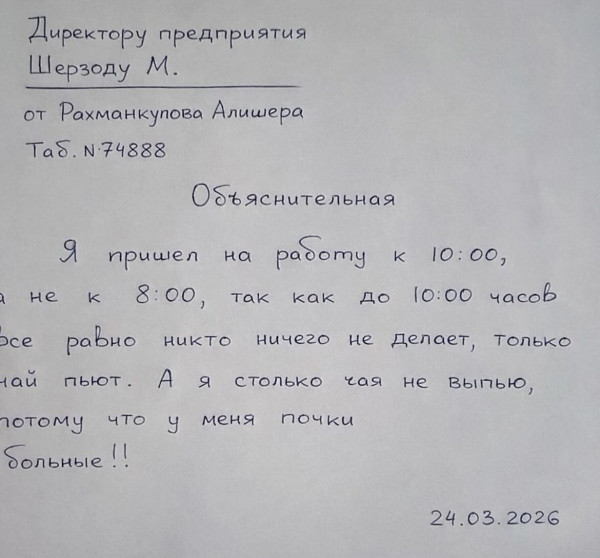 Директору предприятия
Шерзоду М.
от Рахманкулова Алишера
Таб. N·74888
Объяснительная
Я пришел на работу к 10:00,
а не к 8:00, так как до 10:00 часов
все равно никто ничего не делает, только
чай пьют. А я столько чая не выпью,
потому что у меня почки
больные!!
24.03.2026